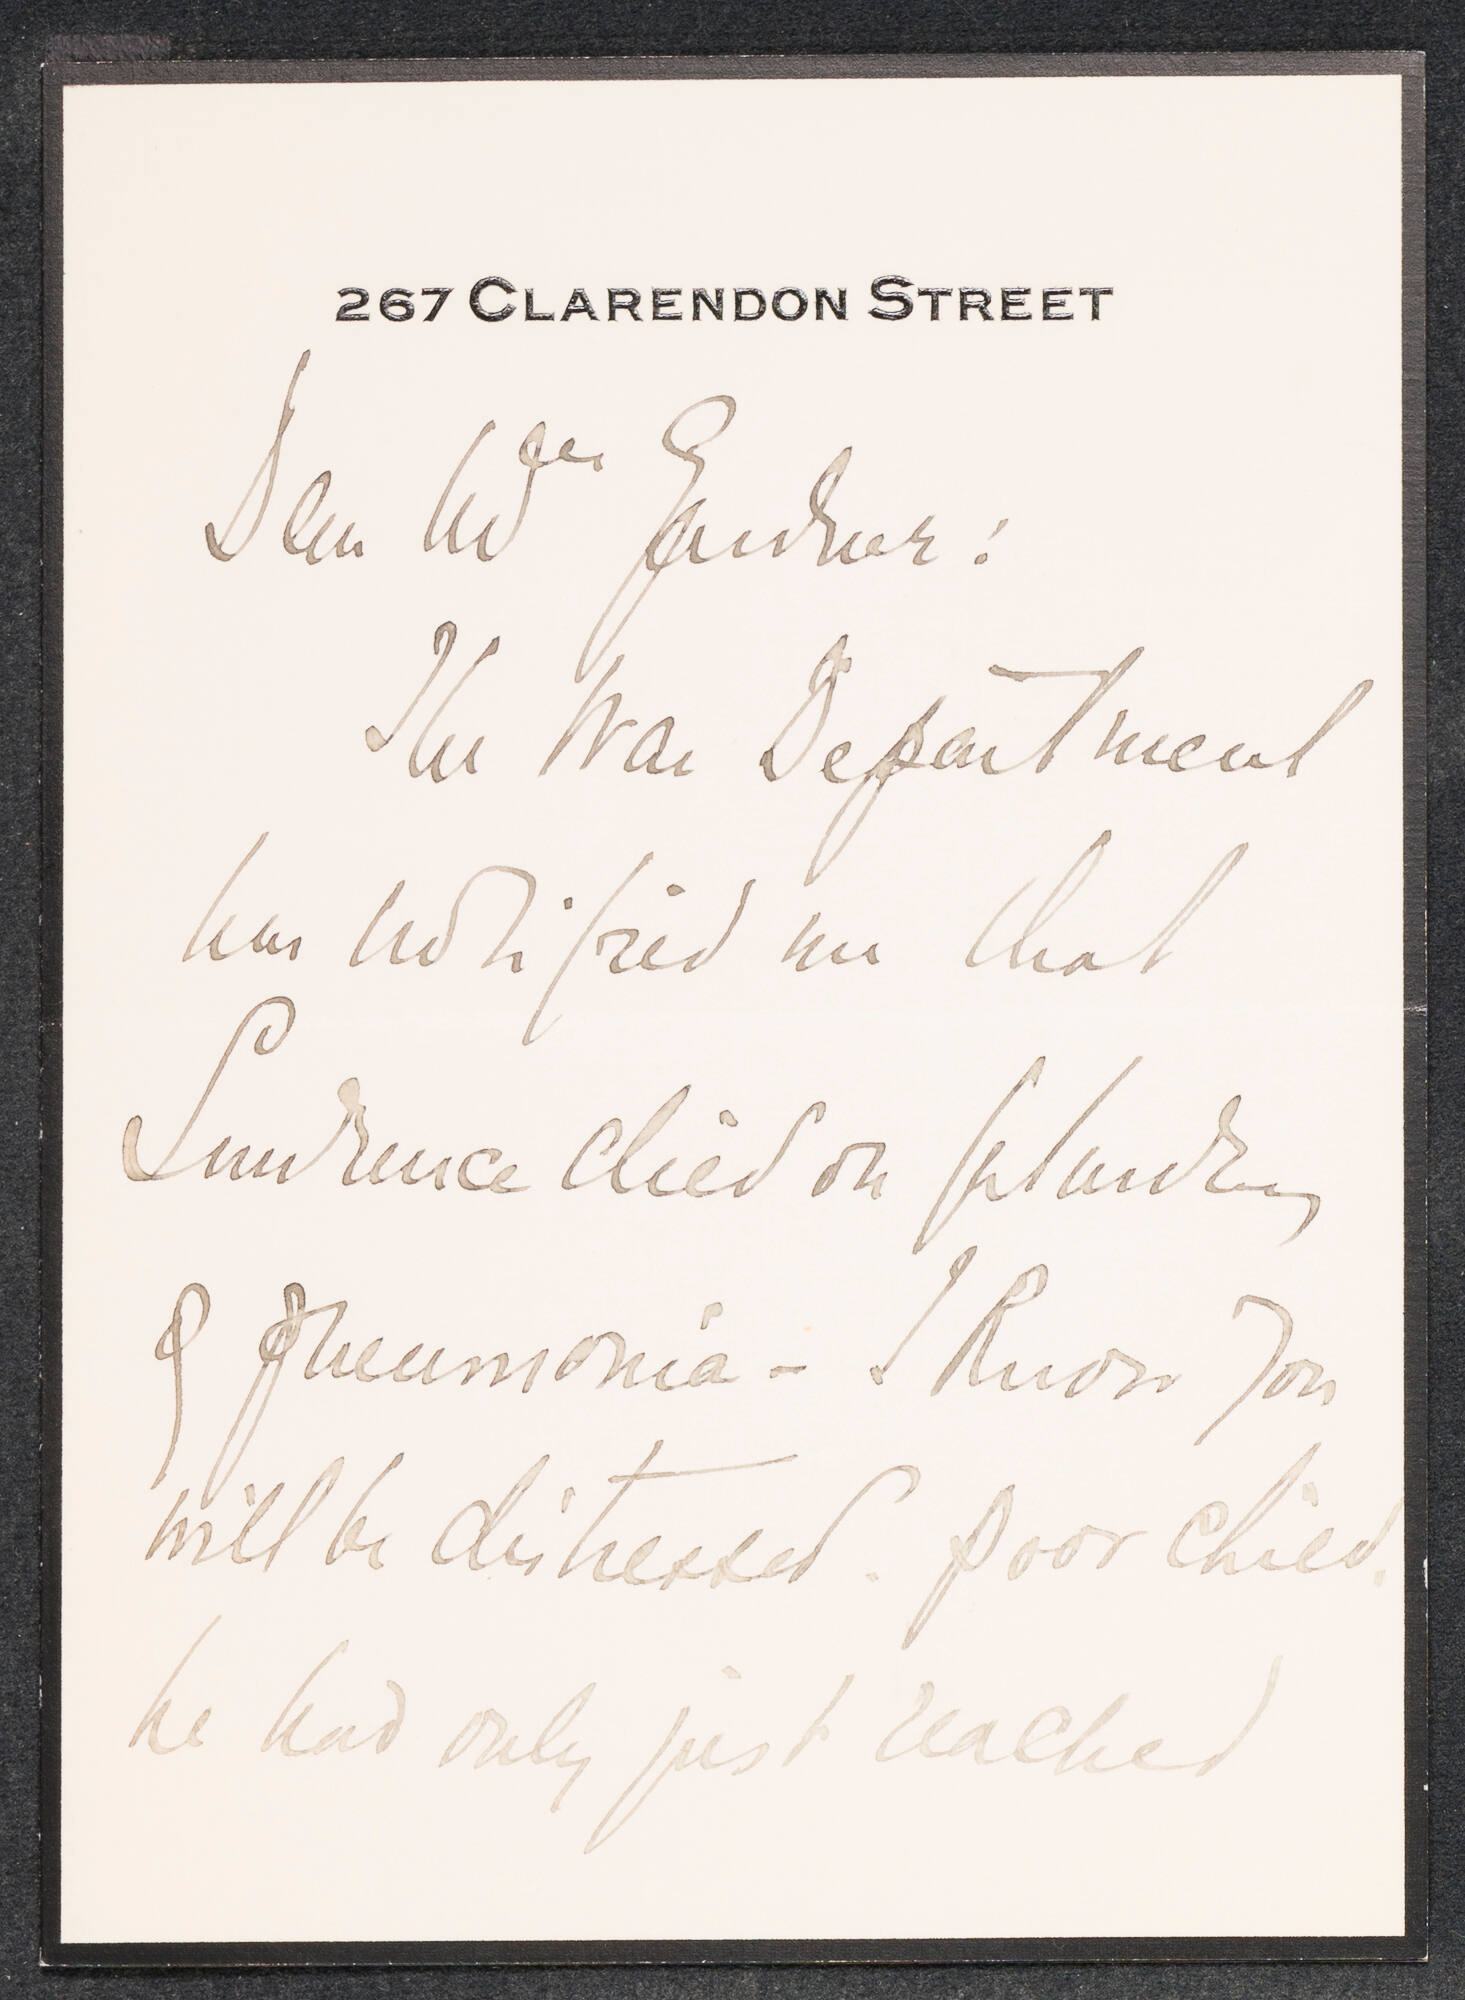 267 CLARENDON STREET
Dear Mrs Gardner:
The War Department
has notified me that
Lawrence died on
of pneumonia – I know you
will be distressed. poor child.
he had only just reached